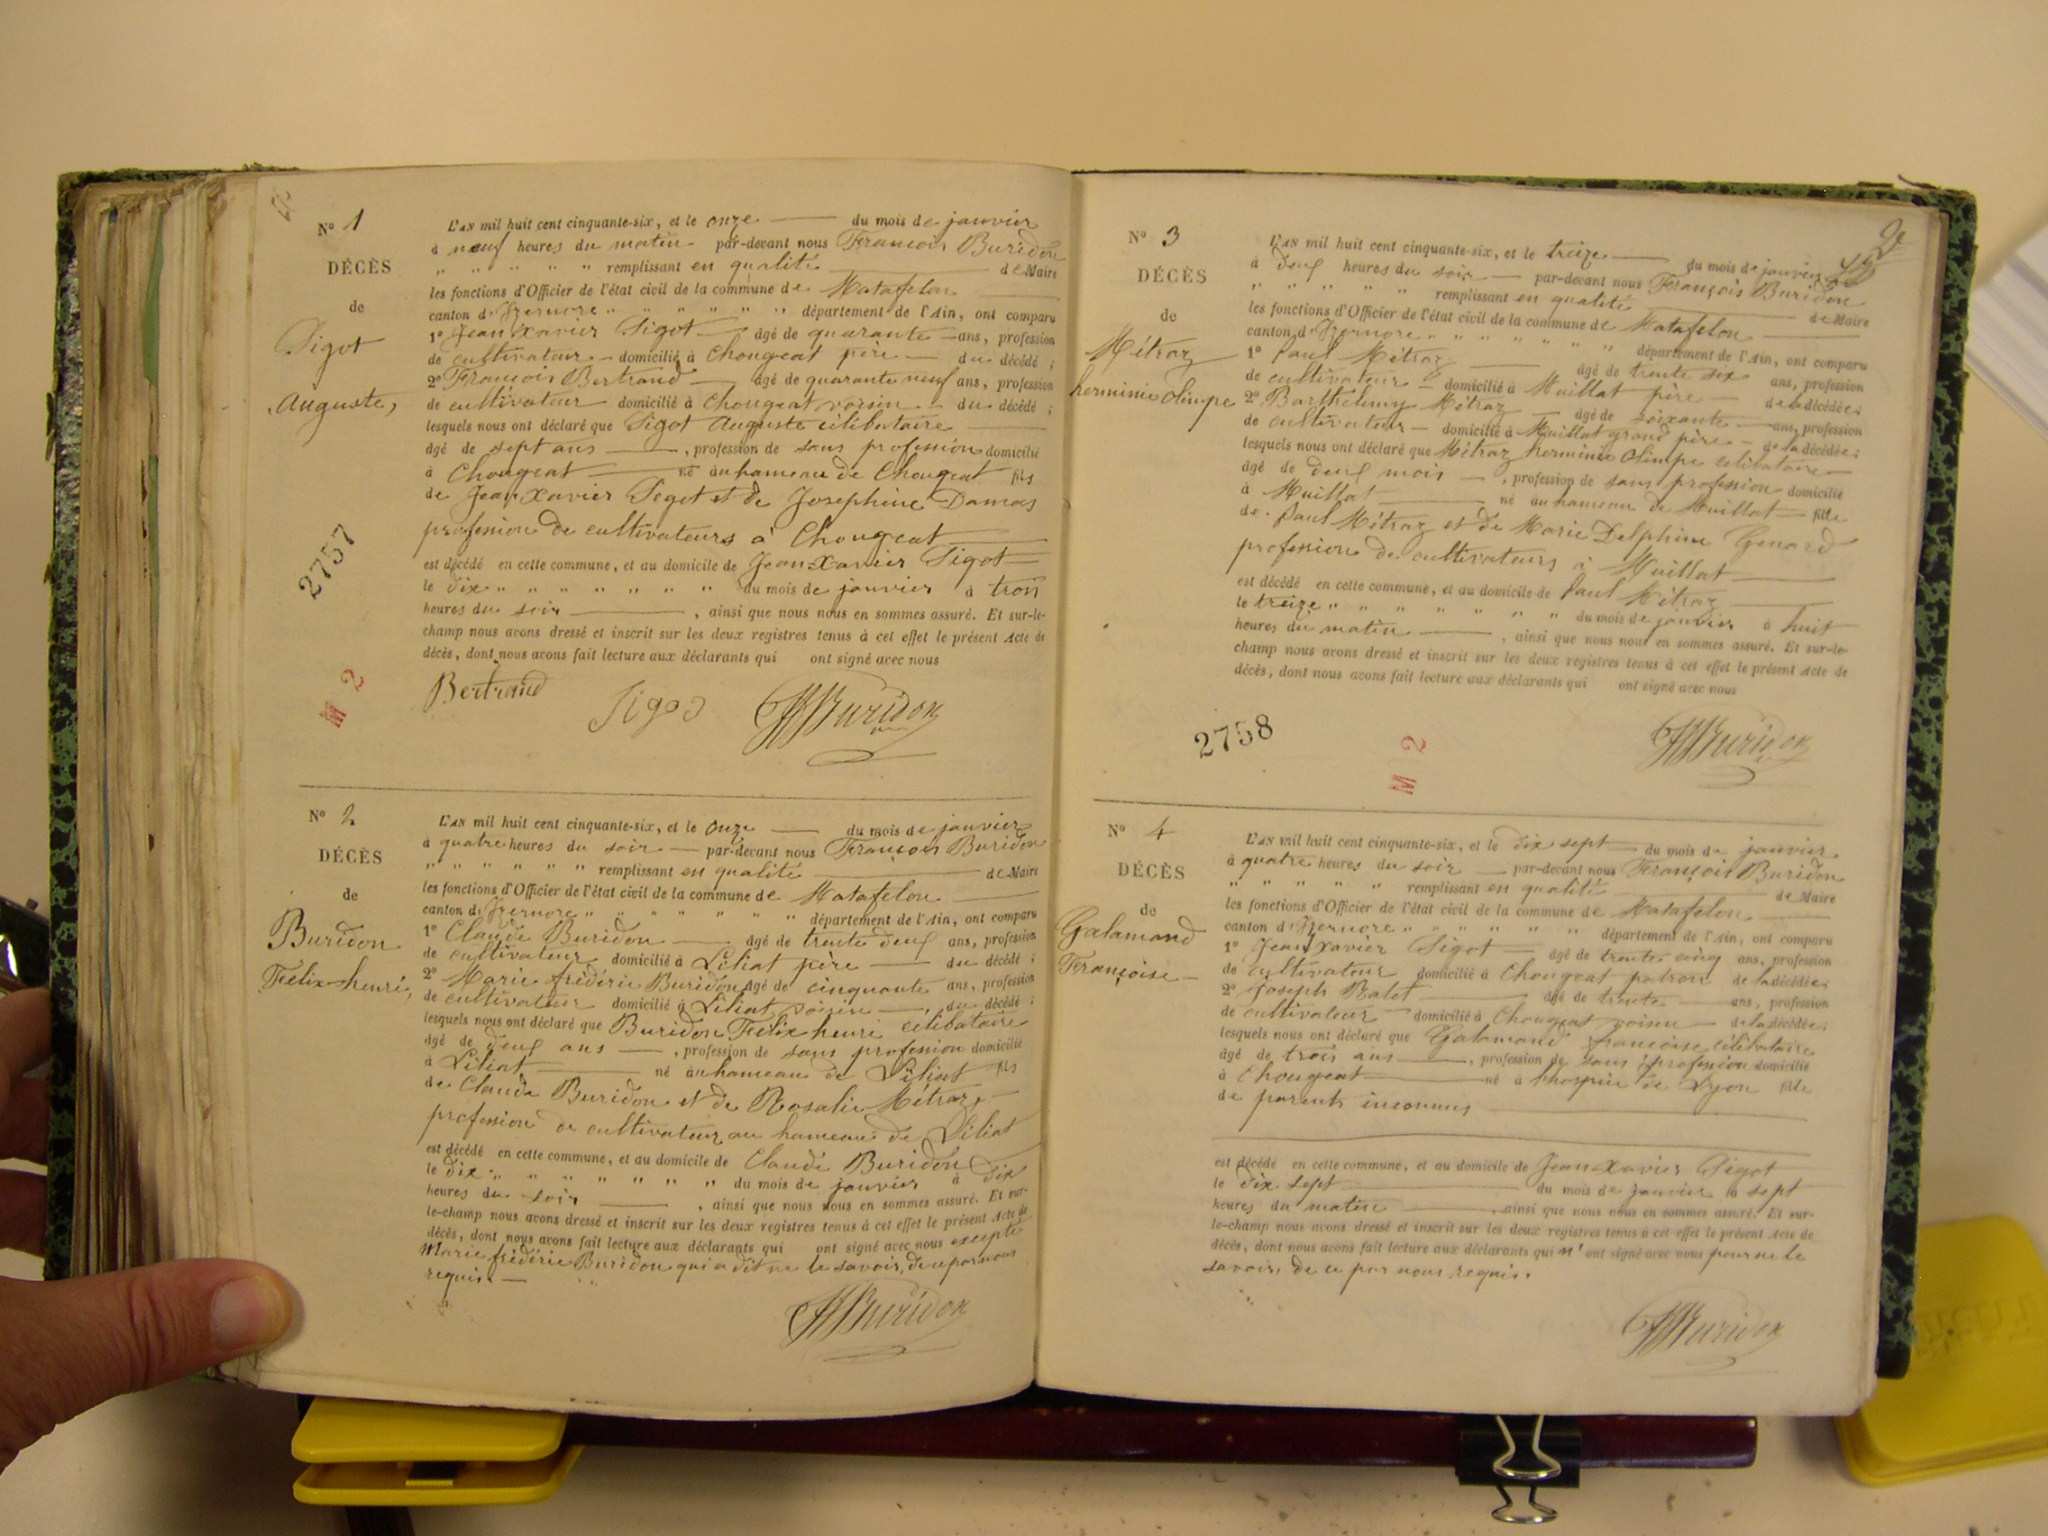 Nº 1
DÉCÈS
de
Sigot
Auguste,
L'AN mil huit cent cinquante-six, et le onze du mois de janvier
à neuf heures du matin par-devant nous François Buridon
" " " " " remplissant en qualité de Maire
les fonctions d'Officier de l'état civil de la commune de Matafelon
canton d'Izernore " " " " " " département de l'Ain, ont comparu
1º Jean Xavier Sigot âgé de quarante ans, profession
de cultivateur domicilié à Chougeat père du décédé ;
2º François Bertrand âgé de quarante neuf ans, profession
de cultivateur domicilié à Chougeat voisin du décédé ;
lesquels nous ont déclaré que Sigot Auguste célibataire
âgé de sept ans , profession de sans profession domicilié
à Chougeat né au hameau de Chougeat fils
de Jean Xavier Sigot et de Josephine Damas
profession de cultivateurs à Chougeat
est décédé en cette commune, et au domicile de Jean Xavier Sigot
le dix " " " " " " " du mois de janvier à trois
heures du soir , ainsi que nous nous en sommes assuré. Et sur-le-
champ nous avons dressé et inscrit sur les deux registres tenus à cet effet le présent Acte de
décès, dont nous avons fait lecture aux déclarants qui ont signé avec nous
Bertrand Sigod Buridon
2757
M 2
Nº 2
DÉCÈS
de
Buridon
Félix-henri,
L'AN mil huit cent cinquante-six, et le onze du mois de janvier
à quatre heures du soir par-devant nous François Buridon
" " " " " " remplissant en qualité de Maire
les fonctions d'Officier de l'état civil de la commune de Matafelon
canton d'Izernore " " " " " " " département de l'Ain, ont comparu
1º Claude Buridon âgé de trente deux ans, profession
de cultivateur domicilié à Liliat père du décédé ;
2º Marie frédéric Buridon âgé de cinquante ans, profession
de cultivateur domicilié à Liliat voisin , du décédé ;
lesquels nous ont déclaré que Buridon Félix henri célibataire
âgé de deux ans , profession de sans profession domicilié
à Liliat né au hameau de Liliat fils
de Claude Buridon et de Rosalie Métraz,
profession de cultivateur au hameau de Liliat
est décédé en cette commune, et au domicile de Claude Buridon
le dix " " " " " " " du mois de janvier à dix
heures du soir , ainsi que nous nous en sommes assuré. Et sur-
le-champ nous avons dressé et inscrit sur les deux registres tenus à cet effet le présent Acte de
décès, dont nous avons fait lecture aux déclarants qui ont signé avec nous excepté
Marie frédéric Buridon qui a dit ne le savoir, de ce par nous
requis.
Buridon
2
Nº 3
DÉCÈS
de
Métraz
herminie olimpe
L'AN mil huit cent cinquante-six, et le treize du mois de janvier
à deux heures du soir par-devant nous François Buridon
" " " " " remplissant en qualité de Maire
les fonctions d'Officier de l'état civil de la commune de Matafelon
canton d'Izernore " " " " " " département de l'Ain, ont comparu
1º Paul Métraz âgé de trente six ans, profession
de cultivateur domicilié à Muillat père de la décédée ;
2º Barthelemy Métraz âgé de soixante ans, profession
de cultivateur domicilié à Muillat grand père de la décédée ;
lesquels nous ont déclaré que Métraz herminie olimpe célibataire
âgé de deux mois , profession de sans profession domicilié
à Muillat né au hameau de Muillat fille
de Paul Métraz et de Marie Delphine Genard
profession de cultivateurs à Muillat
est décédé en cette commune, et au domicile de Paul Métraz
le treize " " " " " " " du mois de janvier à huit
heures du matin , ainsi que nous nous en sommes assuré. Et sur-le-
champ nous avons dressé et inscrit sur les deux registres tenus à cet effet le présent Acte de
décès, dont nous avons fait lecture aux déclarants qui ont signé avec nous
Buridon
2758
M 2
Nº 4
DÉCÈS
de
Galamand
Françoise
L'AN mil huit cent cinquante-six, et le dix sept du mois de janvier
à quatre heures du soir par-devant nous François Buridon
" " " " " remplissant en qualité de Maire
les fonctions d'Officier de l'état civil de la commune de Matafelon
canton d'Izernore " " " " " " département de l'Ain, ont comparu
1º Jean Xavier Sigot âgé de trente cinq ans, profession
de cultivateur domicilié à Chougeat patron de la décédée ;
2º Joseph Ralet âgé de trente ans, profession
de cultivateur domicilié à Chougeat voisin de la décédée ;
lesquels nous ont déclaré que Galamand françoise célibataire
âgé de trois ans , profession de sans profession domicilié
à Chougeat né à l'hospice de Lyon fille
de parents inconnus
est décédé en cette commune, et au domicile de Jean Xavier Sigot
le dix sept du mois de janvier à sept
heures du matin , ainsi que nous nous en sommes assuré. Et sur-
le-champ nous avons dressé et inscrit sur les deux registres tenus à cet effet le présent Acte de
décès, dont nous avons fait lecture aux déclarants qui n'ont signé avec nous pour ne le
savoir, de ce par nous requis.
Buridon